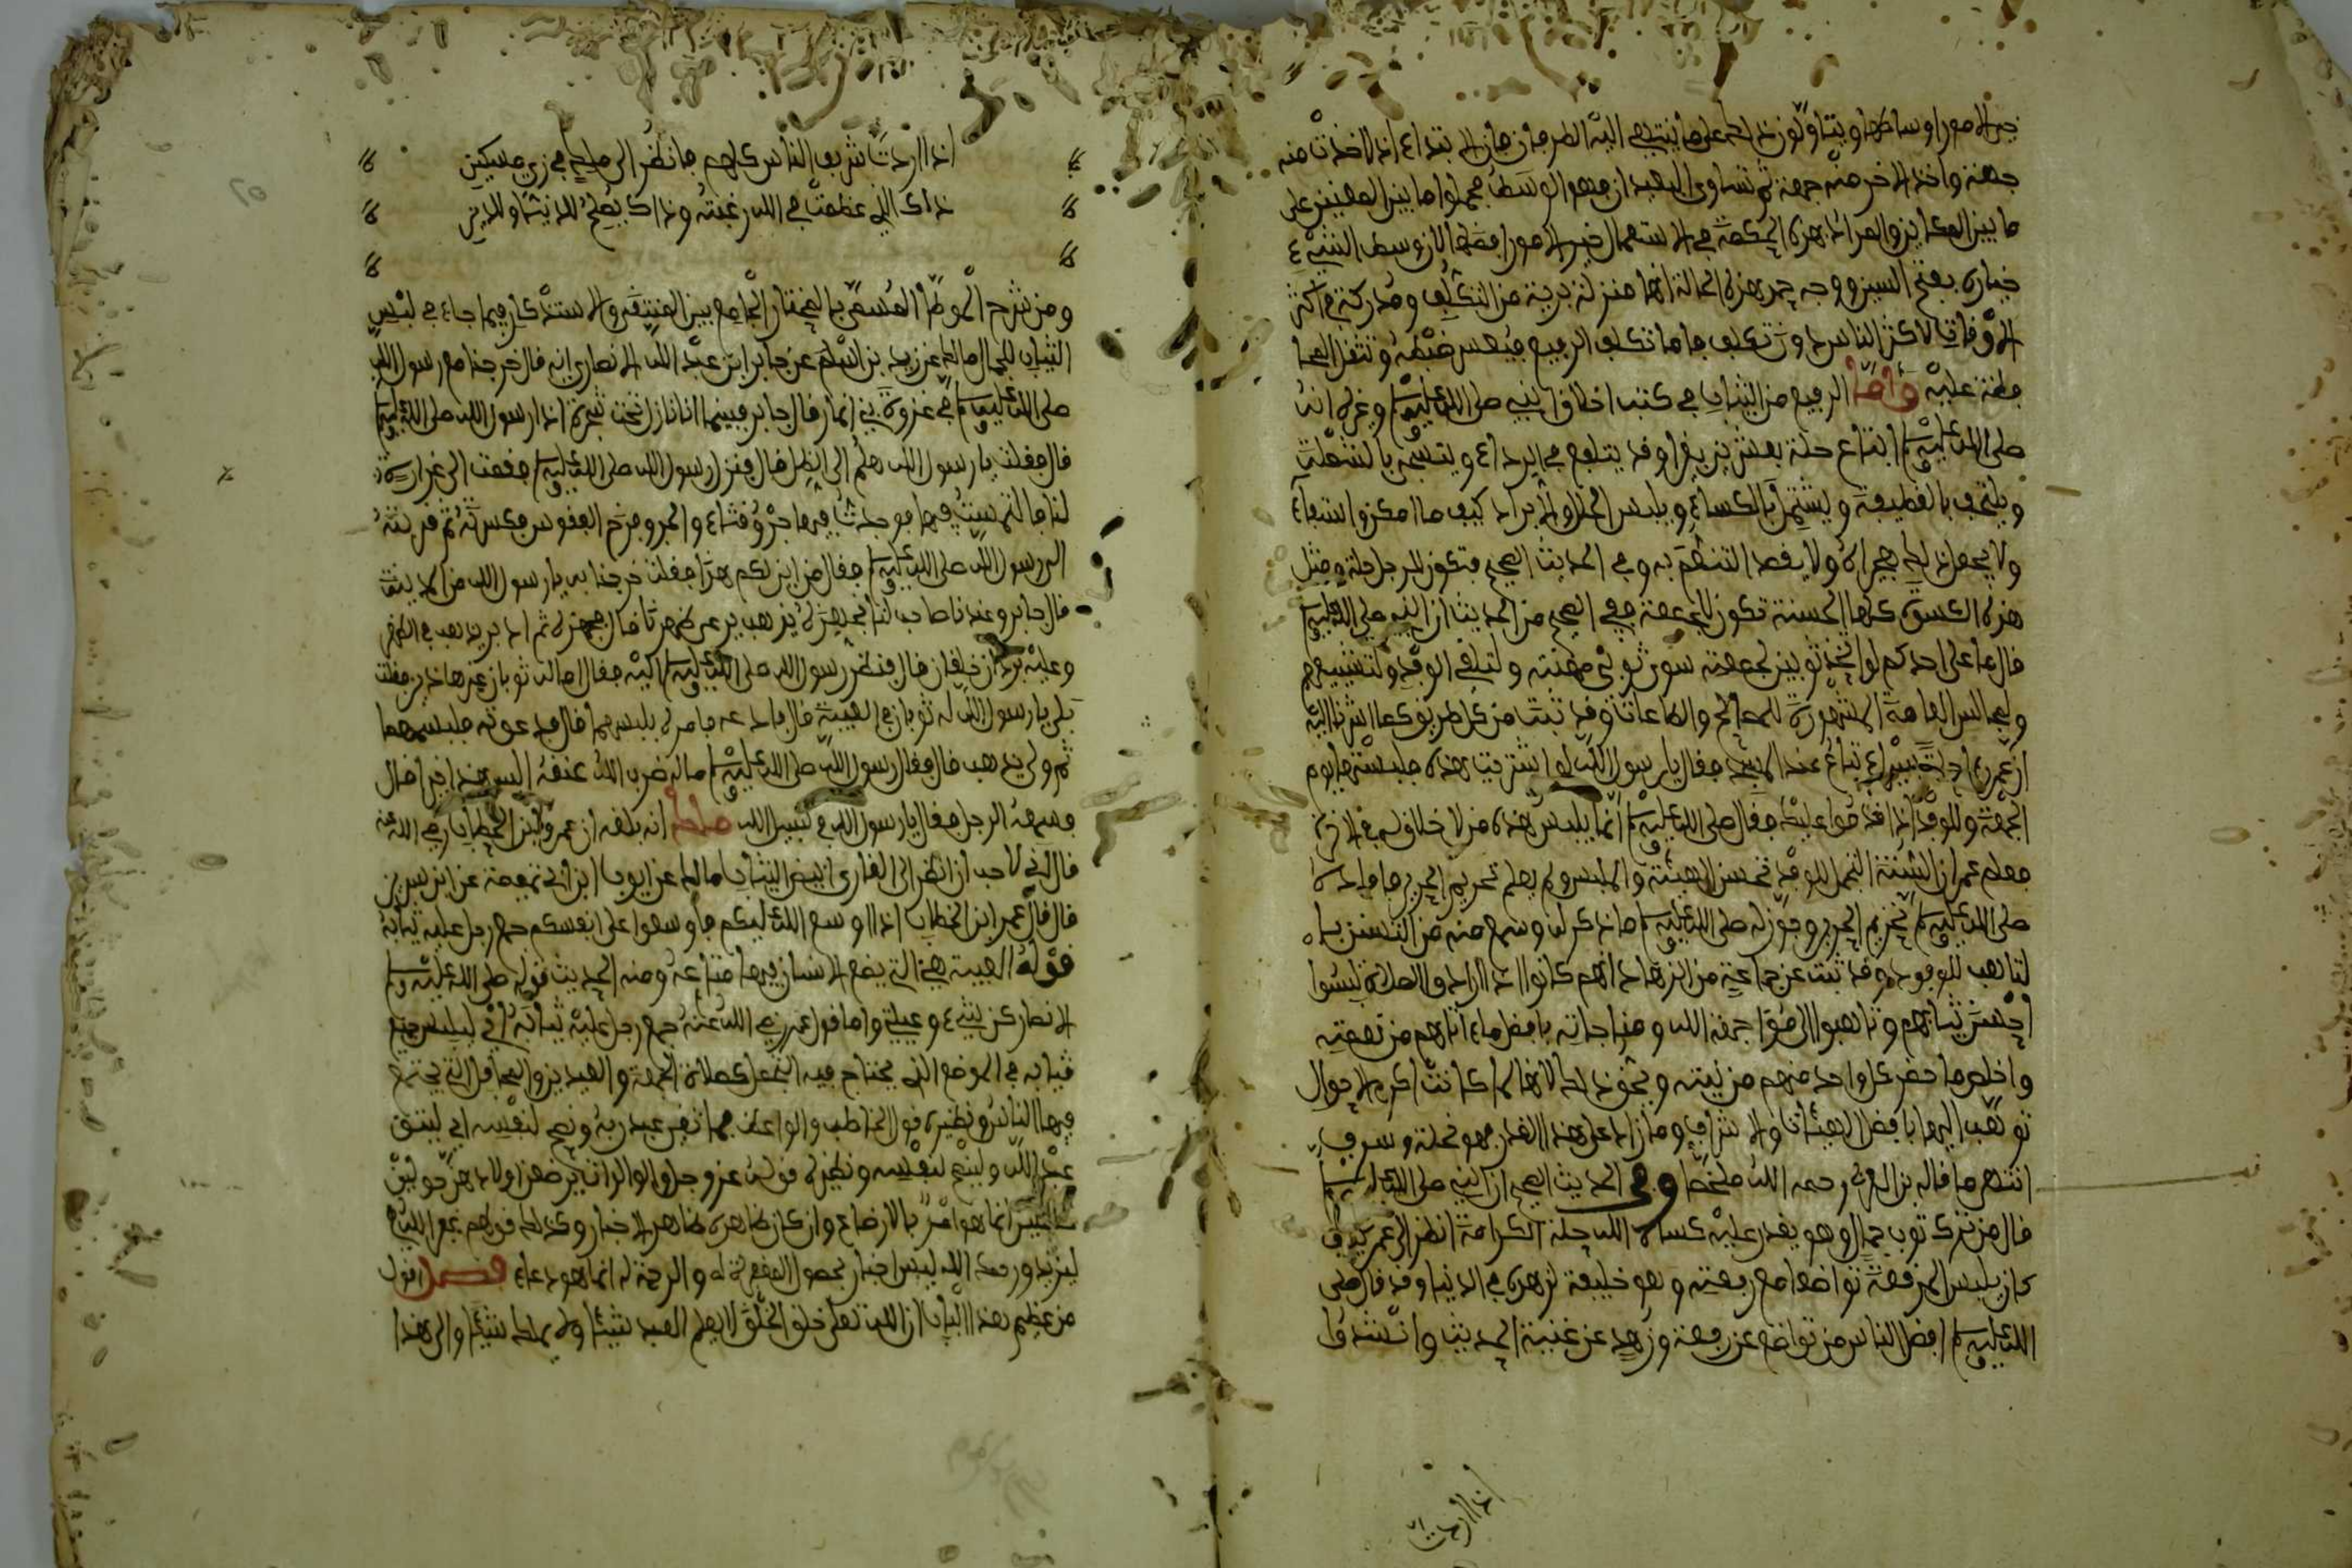 خير الامور اوساطها ويتاولون ذلك على ما ينتهي اليه الطرفان فان الابتداء اذا اخذت منه
جهة واخذ الاخر منه جهة ثم تساوى البعد ان فهو الوسط فحملوا ما بين المعنيين على
ما بين المكانين والمراد بهذه الحكمة في الاستعمال خير الامور افضلها لان وسط الشيء
خياره بفتح السين ووجه حمد هذه الحالة انها منزلة برية من التكلف ومدركة في اكثر
الاوقات لاكثر الناس دون تكلف واما تكلف الرفيع فيعسر ضبطه وتتغير الحال
عليه واما الرفيع من الثياب في كتب اخلاق النبي صلى الله عليه وسلم وغيره انه
صلى الله عليه وسلم ابتاع حلة بعشرين بعيرا وقد يتلفع في الرداء ويتسجى بالشملة
ويلتحف بالقطيفة ويشتمل بالكساء ويلبس الحلل والابراد كيف ما امكن واستعاء
ولا يجعل ذلك هجيراه ولا يقصد التنطع به وفي الحديث الصحيح فتكون للرجل حلة ومثل
هذه الكسوة كلها الحسنة تكون للجمعة ففي الصحيح من الحديث ان النبي صلى الله عليه وسلم
قال ما على احدكم لو اتخذ ثوبين لجمعته سوى ثوبي مهنته ولتلقي الوفد ولتشييعهم
ولمجالس العامة المشهورة للمصالح والطاعات وقد ثبت من كل طريق كما اشرنا اليه
ان عمر راى حلة سيراء تباع عند المسجد فقال يا رسول الله لو اشتريت هذه فلبستها يوم
الجمعة وللوفد اذا قدموا عليك فقال صلى الله عليه وسلم انما يلبس هذه من لا خلاق له في الاخرة
فعلم عمر ان السنة التجمل للوفد بحسن الهيئة والملبس ولم يعلم تحريم الحرير فافاده
صلى الله عليه وسلم تحريم الحرير وجوز له صلى الله عليه وسلم ما ذكر له وسمع منه من التسنن بها
لتاهب للوفود وقد ثبت عن جماعة من الزهاد انهم كانوا اذا ارادوا الصلاة لبسوا
احسن ثيابهم وتاهبوا الى مواجهة الله ومناجاته بافضل ما اتاهم من نعمته
واخلص ما حضر كل واحد منهم من نيته وبحق ذلك لانها لما كانت اكرم الاحوال
توهب اليها بافضل الهيئات والاشراف وما زاد على هذا القدر فهو مخيلة وسرف
انتهى ما قاله بن العربي رحمه الله ملخصا وفي الحديث الصحيح ان النبي صلى الله عليه وسلم
قال من ترك ثوب جمال وهو يقدر عليه كساه الله حلة الكرامة انظر الى عمر كيف
كان يلبس المرقعة تواضعا مع رفعته وهو خليفة لزهده في الدنيا وقد قال صلى
الله عليه وسلم افضل الناس من تواضع عن رفعة وزهد عن غنية الحديث وانشدوا
اذا اردت
اذا اردت شريف الناس كلهم فانظر الى ملك في زي مسكين
ذاك الذي عظمت في الله رغبته وذاك يصلح للدنيا وللدين
ومن شرح الموطا المسمى بالمختار الجامع بين المنتقى والاستذكار فيما جاء في لبس
الثياب للجمال مالك عن زيد بن اسلم عن جابر ابن عبد الله الانصاري انه قال خرجنا مع رسول الله
صلى الله عليه وسلم في غزوة بني انمار قال جابر فبينما انا نازل تحت شجرة اذا رسول الله صلى الله عليه وسلم
قال فقلت يا رسول الله هلم الى الظل قال فنزل رسول الله صلى الله عليه وسلم فقمت الى غرارة
لنا فالتمست فيها فوجدت فيها جرو قثاء والجرو فرخ الفقوس فكسرته ثم قربته
الى رسول الله صلى الله عليه وسلم فقال من اين لكم هذا فقلت خرجنا به يا رسول الله من المدينة
قال جابر وعندنا صاحب لنا نجهزه يذهب يرعى ظهرنا قال فجهزته ثم ادبر يذهب في الظهر
وعليه بردان خلقان قال فنظر رسول الله صلى الله عليه وسلم اليه فقال اما له ثوبان غير هاذين فقلت
بلى يا رسول الله له ثوبان في العيبة قال فادعه فامره يلبسهما قال فدعوته فلبسهما
ثم ولى يذهب قال فقال رسول الله صلى الله عليه وسلم ما له ضرب الله عنقه اليس هذا خيرا قال
فسمعه الرجل فقال يا رسول الله في سبيل الله مالك انه بلغه ان عمر بن الخطاب رضي الله عنه
قال اني لاحب ان انظر الى القارئ ابيض الثياب مالك عن ايوب ابن ابي تميمة عن ابن سيرين
قال قال عمر ابن الخطاب اذا اوسع الله عليكم فاوسعوا على انفسكم جمع رجل عليه ثيابه
قوله العيبة هي التي يضع الانسان فيها متاعه ومنه الحديث قوله صلى الله عليه وسلم
الانصار كرشي وعيبتي واما قول عمر رضي الله عنه جمع رجل عليه ثيابه اي ليلبس جميع
ثيابه في الموضع الذي يحتاج فيه التجمل كصلاة الجمعة والعيدين والمحافل التي يجتمع
فيها الناس ونظيره قول الخاطب والواعظ فيها اتقى عبد ربه ونصح لنفسه اي ليتق
عبد الله ولينصح لنفسه ونظيره قوله عز وجل والوالدات يرضعن اولادهن حولين
كاملين انما هو امر بالارضاع وان كان ظاهره ظاهر الاخبار وكذلك قولهم غفر الله
لزيد ورحمه الله ليس اخبار بحصول المغفرة له والرحمة له انما هو دعاء فصل اقول
من عظيم هذا الباب ان الله تعلى خلق الخلق لا يعلم العبد شيئا ولا يملك شيئا والى هذا